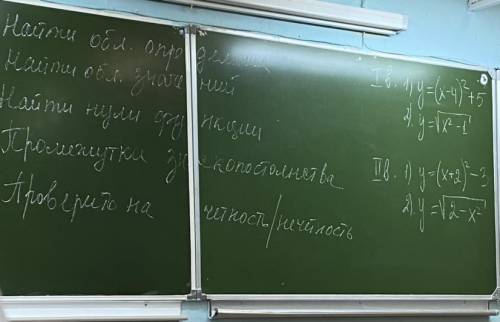 Найти обл. определения
Найти обл. значений
Найти нули функции
Промежутки знакопостоянства
Проверить на четность/нечётность
I в. 1) y=(x-4)²+5
2). y=√x²-1
II в. 1) y=(x+2)²-3
2). y=√2-x²